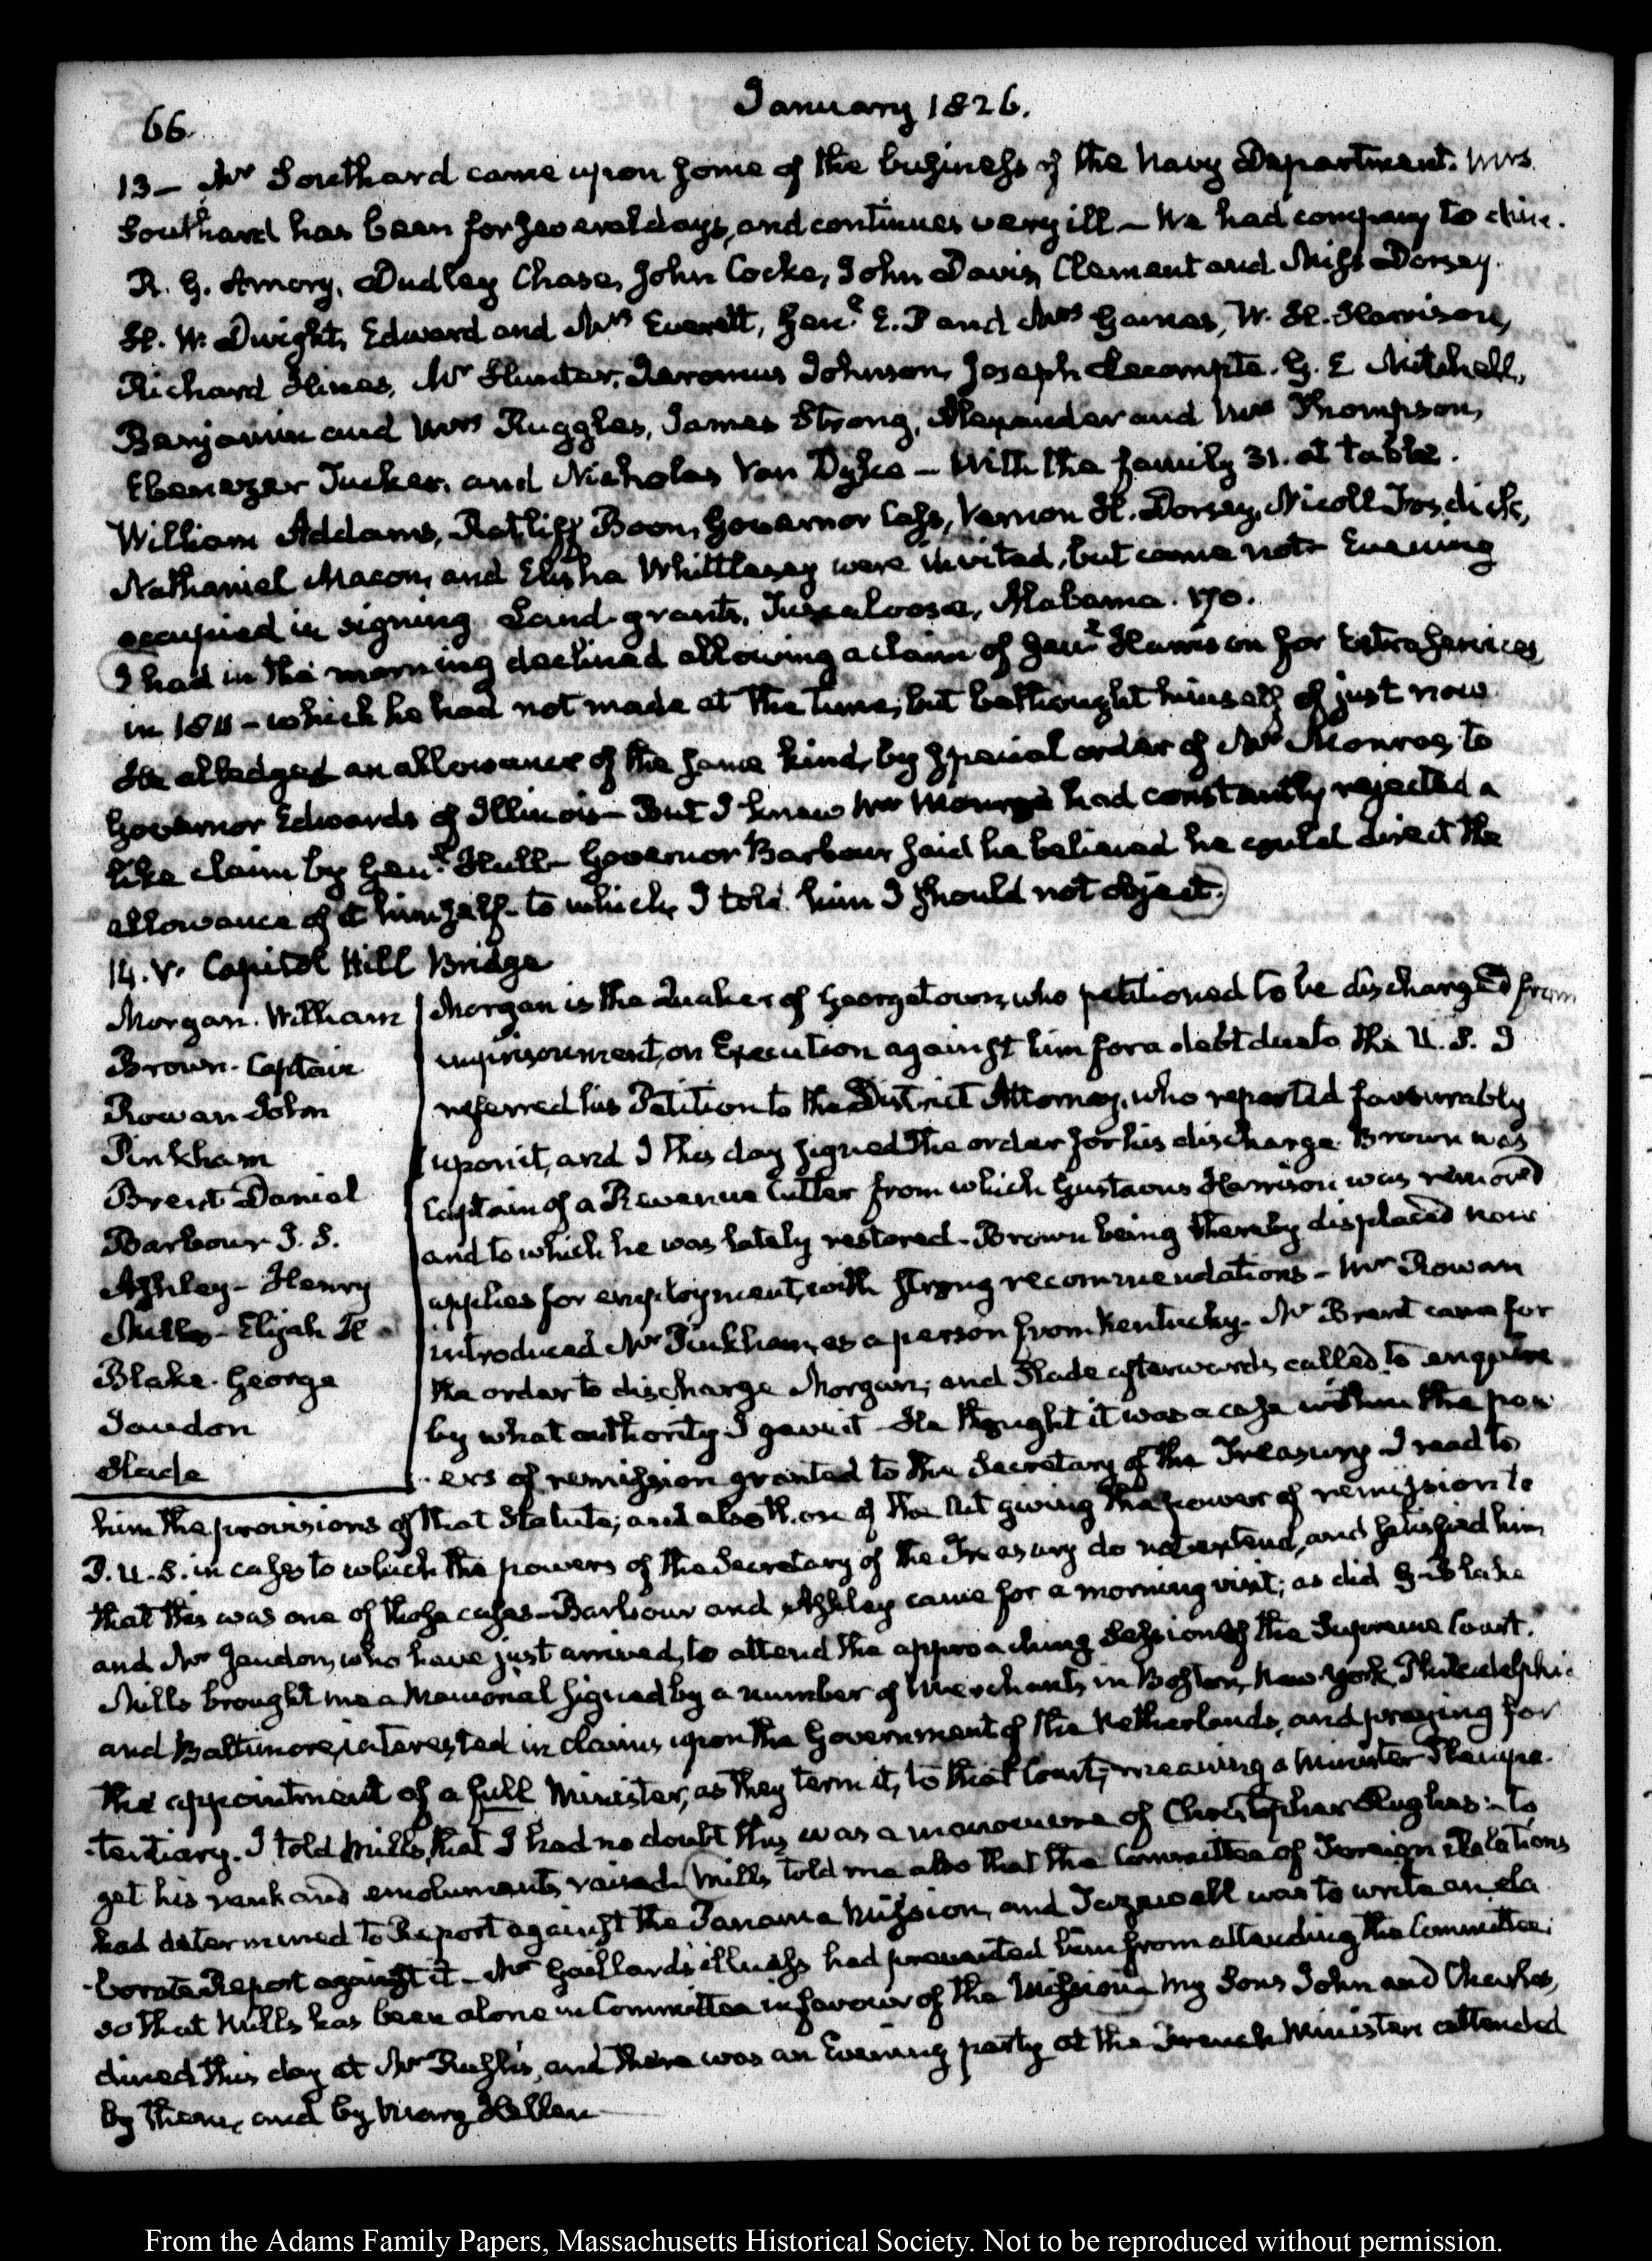 66.
January 1826.
13— Mr Southard came upon some of the business of the Navy Department. Mrs
Southard has been for several days, and continues very ill — We had company to dine.
R. G. Amory, Dudley Chase, John Cocke, John Davis, Clement and Miss Dorsey.
H. W. Dwight, Edward and Mrs Everett, Genl E. P and Mrs Gaines, W. H. Harrison,
Richard Hines, Mr Hunter, Jeromus Johnson, Joseph Lecompte. G. E Mitchell,
Benjamin and Mrs Ruggles, James Strong, Alexander and Mrs Thompson,
Ebenezer Tucker, and Nicholas Van Dyke — With the family 31. at table.
William Addams, Ratliff Boon, Governor Cass, Vernon H. Dorsey, Nicoll Fosdick,
Nathaniel Macon, and Elisha Whittlesey were invited, but came not — Evening
occupied in signing Land-grants, Tuscaloosa, Alabama. 170.
I had in the morning declined allowing a claim of Genl Harrison for extra services
in 1811 — which he had not made at the time, but bethought himself of just now
He alledged an allowance of the same kind, by special order of Mr Monroe, to
Governor Edwards of Illinois — But I knew Mr Monroe had constantly rejected a
like claim by Genl Hull — Governor Barbour said he believed he could direct the
allowance of it himself — to which I told him I should not object.
14. V. Capitol Hill Bridge
Morgan. William
Brown. Captain
Rowan John
Pinkham
Brent Daniel
Barbour J. S.
Ashley — Henry
Mills — Elijah H
Blake. George
Jaudon
Slade
Morgan is the Quaker of Georgetown, who petitioned to be discharged from
imprisonment, on Execution against him for a debt due to the U. S. I
referred his Petition to the District Attorney, who reported favourably
upon it, and I this day signed the order for his discharge. Brown was
Captain of a Revenue Cutter from which Gustavus Harrison was removed
and to which he was lately restored — Brown being thereby displaced now
applies for employment, with strong recommendations — Mr Rowan
introduced Mr Pinkham, as a person from Kentucky — Mr Brent came for
the order to discharge Morgan; and Slade afterwards called to enquire
by what authority I gave it — He thought it was a case within the pow
-ers of remission granted to the Secretary of the Treasury — I read to
him the provisions of that Statute; and also those of the Act giving the power of remission to
P. U. S. in cases to which the powers of the Secretary of the Treasury do not extend, and satisfied him
that this was one of those cases — Barbour and Ashley came for a morning visit; as did G. Blake
and Mr Jaudon, who have just arrived, to attend the approaching Session of the Supreme Court.
Mills brought me a Memorial signed by a number of Merchants in Boston, New York, Philadelphia
and Baltimore, interested in claims upon the Government of the Netherlands, and praying for
the appointment of a full Minister, as they term it, to that Court; meaning a Minister Plenipo-
-tentiary. I told Mills, that I had no doubt this was a manoeuvre of Christopher Hughes: to
get his rank and emoluments raised. Mills told me also that the Committee of Foreign Relations
had determined to Report against the Panama Mission, and Tazewell was to write an ela
-borate Report against it — Mr Gaillard's illness had prevented him from attending the Committee;
so that Mills has been alone in Committee in favour of the Mission — My Sons John and Charles,
dined this day at Mr Rush's, and there was an Evening party at the French Ministers attended
by them, and by Mary Hellen —
From the Adams Family Papers, Massachusetts Historical Society. Not to be reproduced without permission.